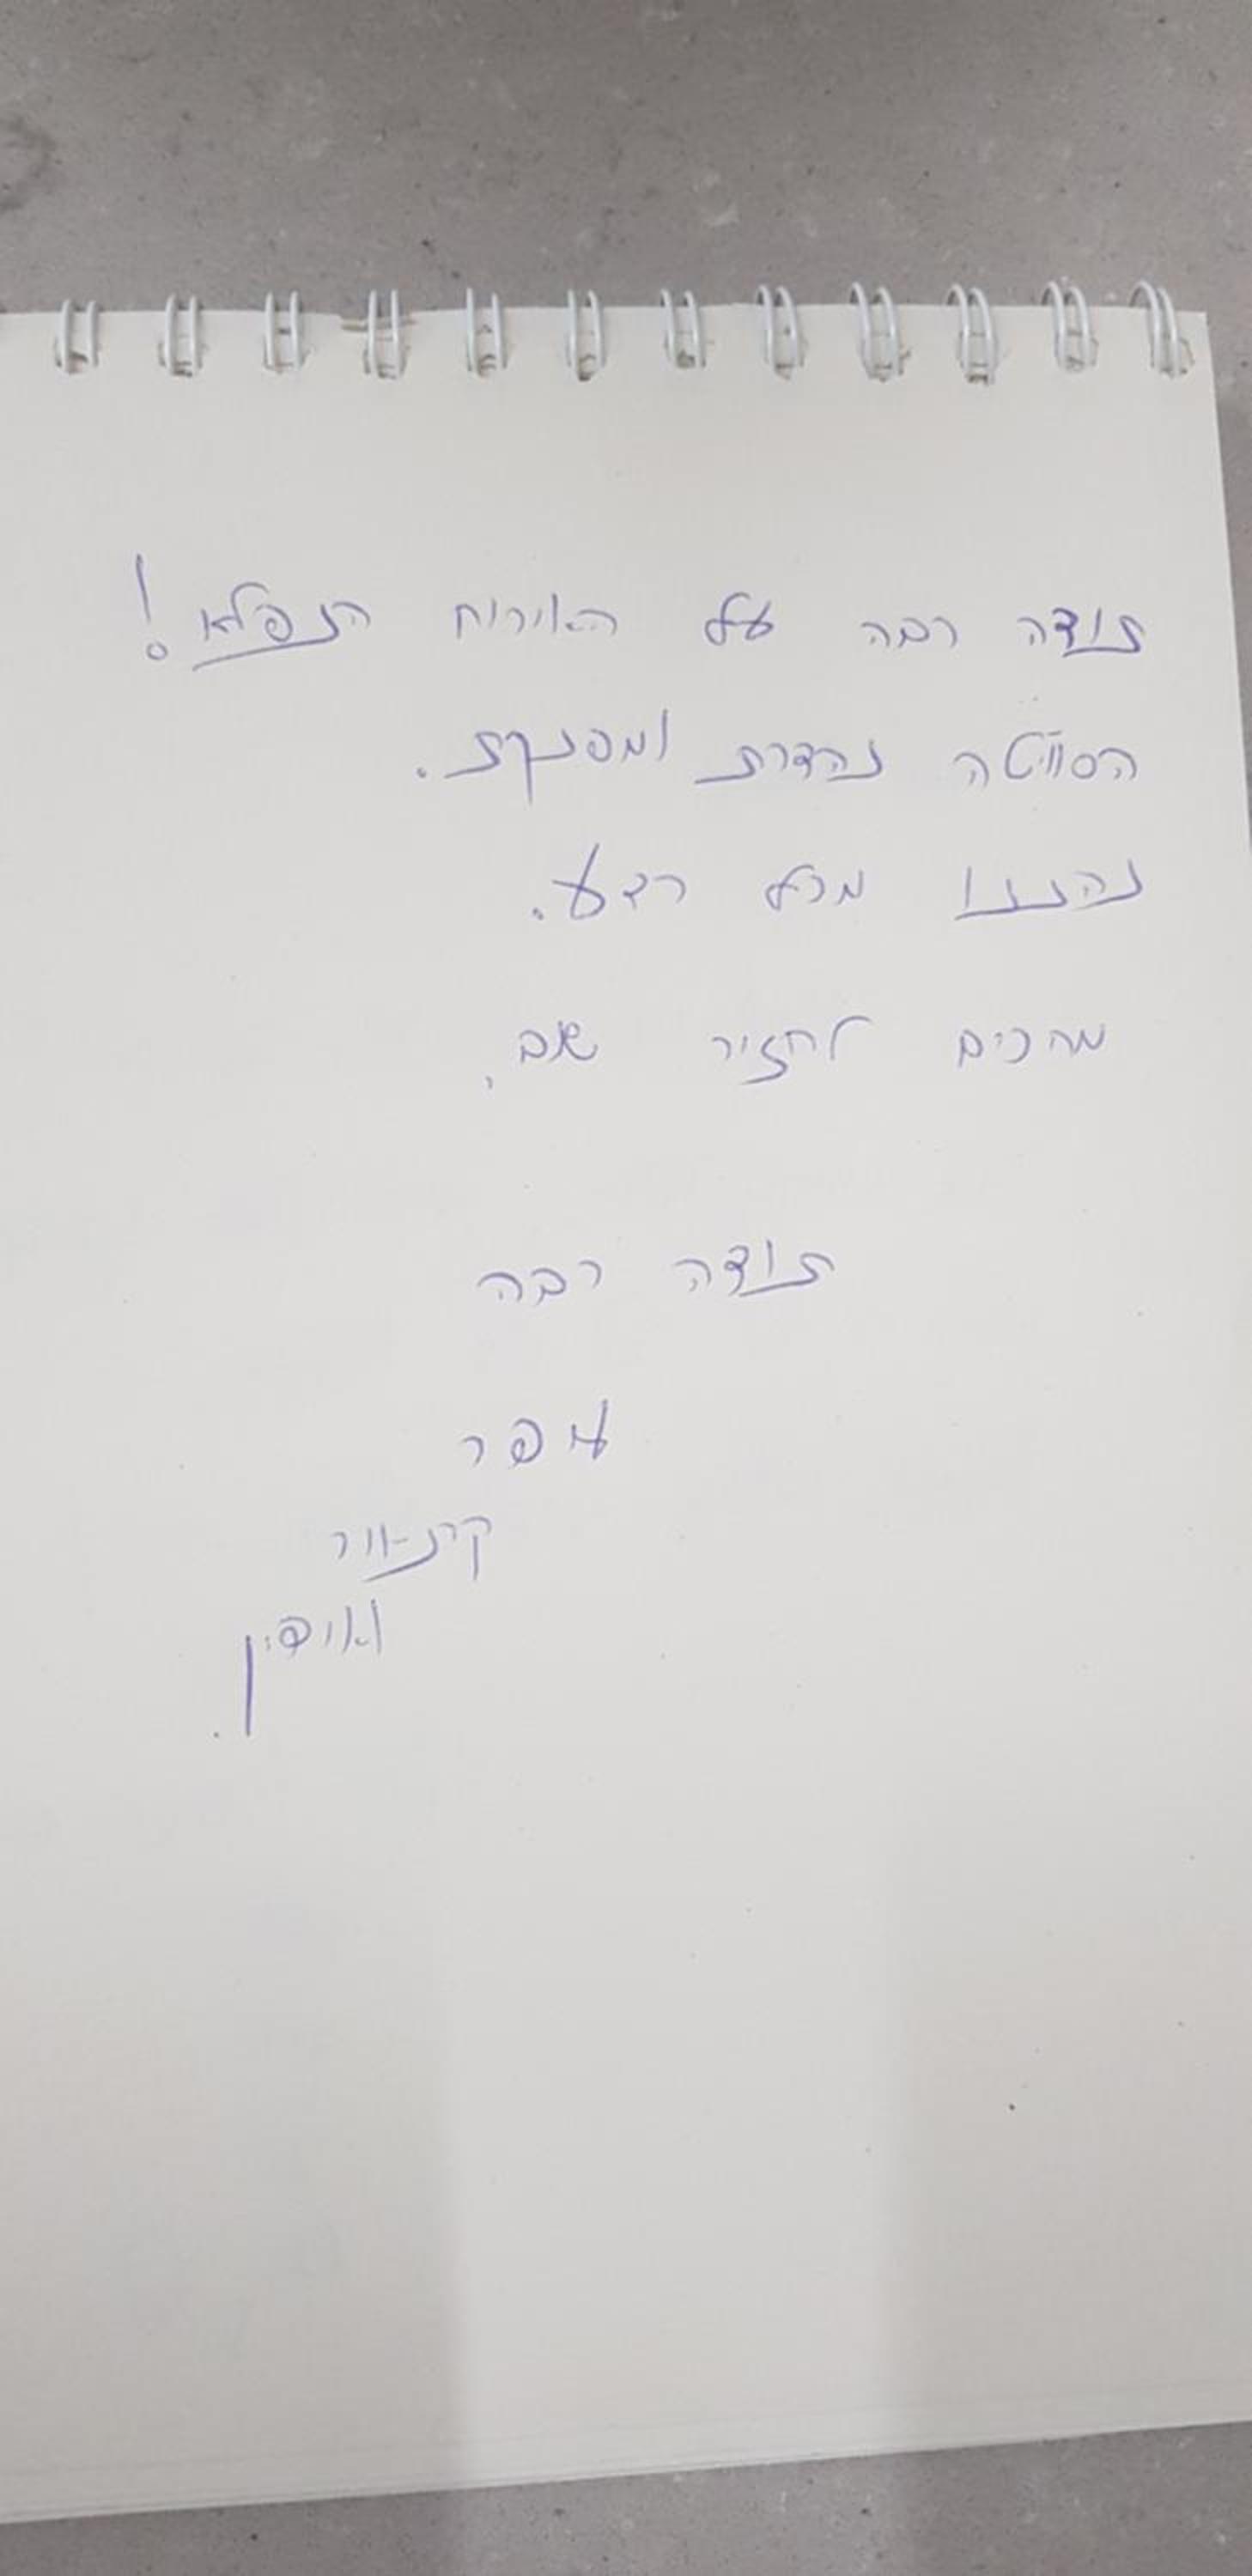 תודה רבה על האירוח הנפלא!
הסוויטה נהדרת ומפנקת.
נהננו מכל רגע.
מחכים לחזור שוב,
תודה רבה
עופר